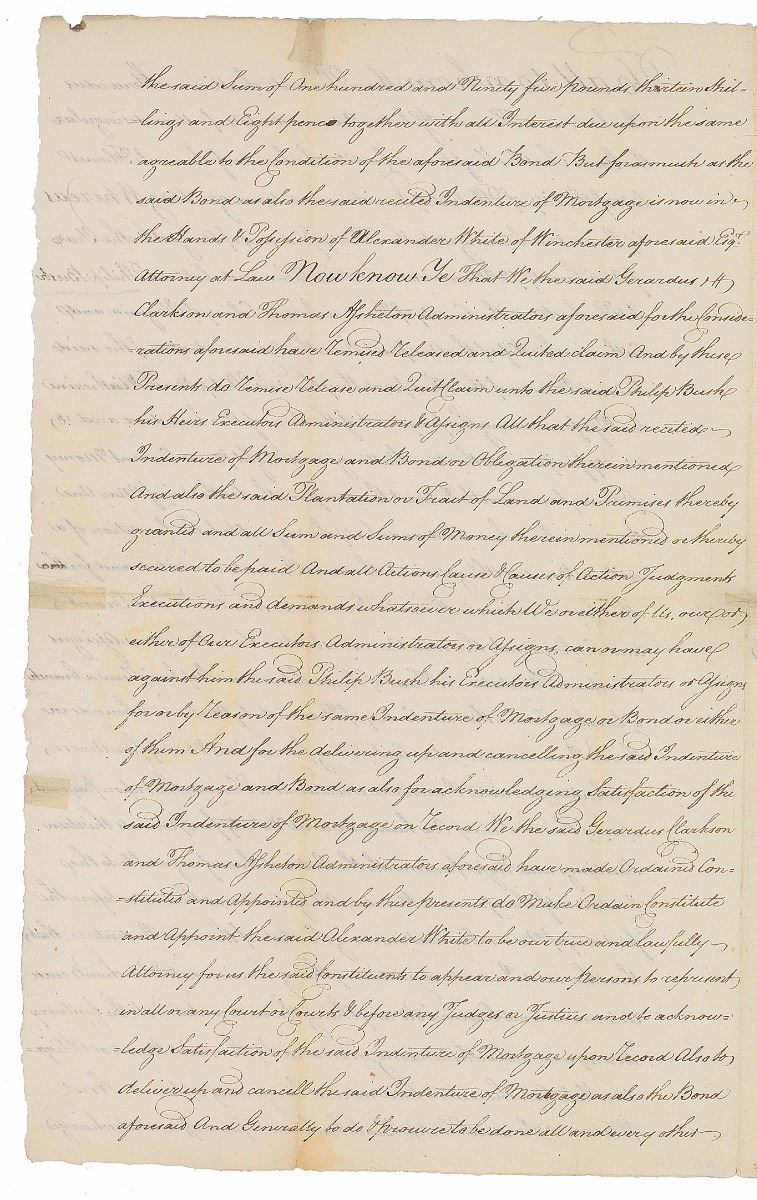 the said Sum of One hundred and Ninety five pounds thirteen Shil-
-lings and Eight pence together with all Interest due upon the same
agreable to the Condition of the aforesaid Bond But forasmuch as the
said Bond as also the said recited Indenture of Mortgage is now in
the Hands & Possession of Alexander White of Winchester aforesaid Esqr.
Attorney at Law Now know Ye That We the said Gerardus
Clarkson and Thomas Assheton Administrators aforesaid for the Conside-
rations aforesaid have Remised Released and Quited claim And by these
Presents do Remise Release and Quit Claim unto the said Philip Bush
his Heirs Executors Administrators & Assigns All that the said recited
Indenture of Mortgage and Bond or Obligation therein mentioned
And also the said Plantation or Tract of Land and Premises thereby
granted and all Sum and Sums of Money therein mentioned or thereby
secured to be paid And all Actions Cause & Causes of Action Judgments
Executions and demands whatsoever which We or either of Us, our or
either of Our Executors Administrators or Assigns, can or may have
against him the said Philip Bush his Executors Administrators or Assigns
for or by Reason of the same Indenture of Mortgage or Bond or either
of them And for the delivering up and cancelling the said Indenture
of Mortgage and Bond as also for acknowledging Satisfaction of the
said Indenture of Mortgage on Record We the said Gerardus Clarkson
and Thomas Assheton Administrators aforesaid have made Ordained Con=
=stituted and Appointed and by these presents do Make Ordain Constitute
and Appoint the said Alexander White to be our true and lawfully
Attorney for us the said Constituents to appear and our Persons to represent
in all or any Court or Courts & before any Judges or Justices and to acknow=
=ledge Satisfaction of the said Indenture of Mortgage upon Record Also to
deliver up and cancell the said Indenture of Mortgage as also the Bond
aforesaid And Generally to do & procure to be done all and every other